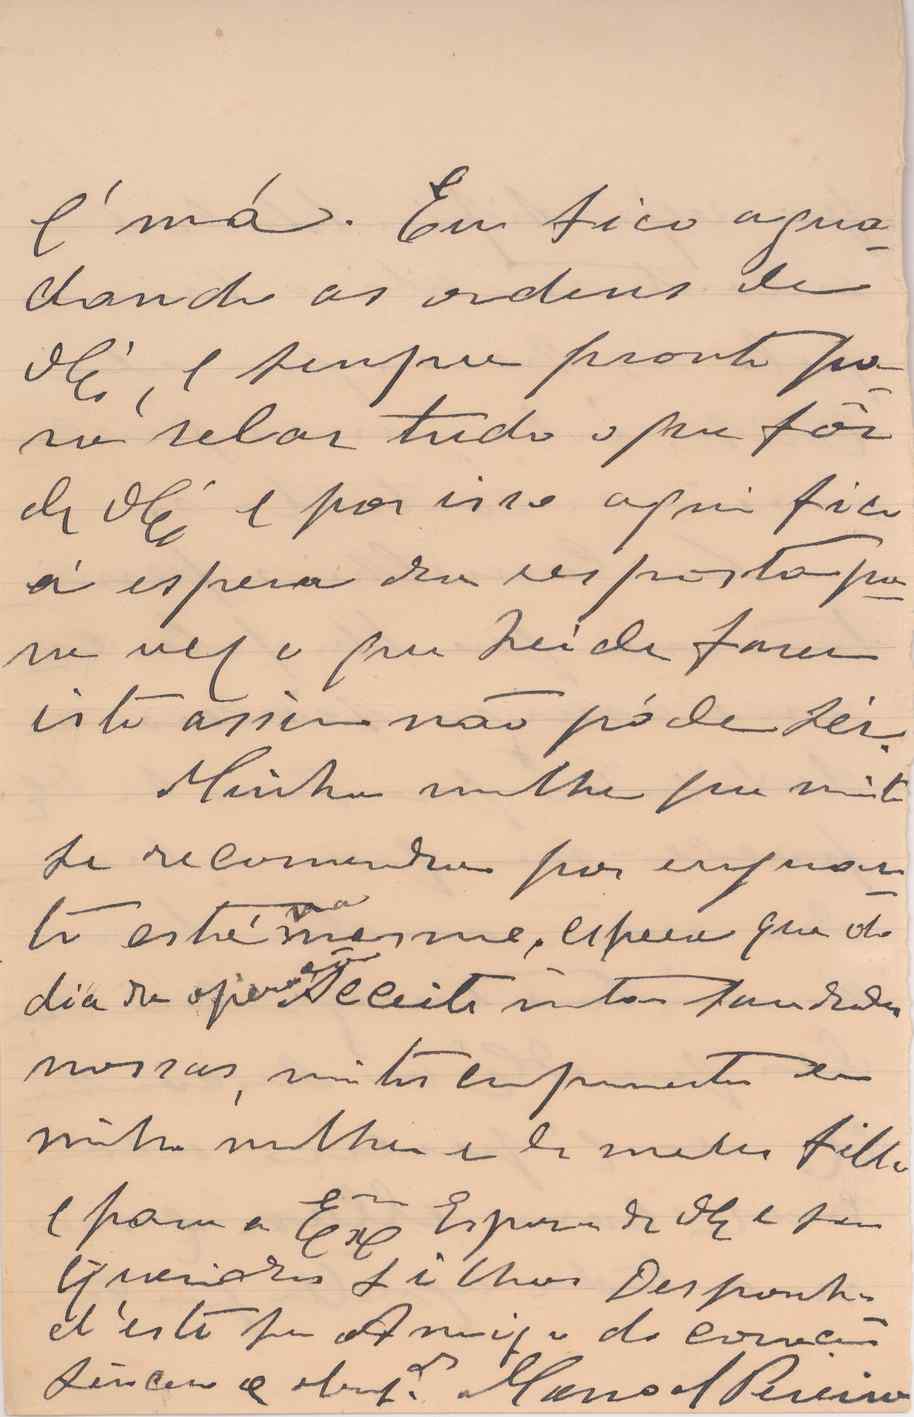 é má. Eu fico agua-
dando as ordens de
e sempre pronto pa-
ra selar tudo o que fôr
de e por isso aqui fico
á espera da resposta pa-
ra vêr o que hei de faser
isto assim não póde sêr.
Minha mulher que muito
se recomenda por enquan-
to está na mesma, espera que do
dia da operação Acceite muitas saudades
nossas, muitos comprimentos de
minha mulher e de meu filho
e para a Exmª Esposa de e seus
queridos filhos Desponha
d'este seu Amigo do coração
sincero e obrigdº Manoel Pereira